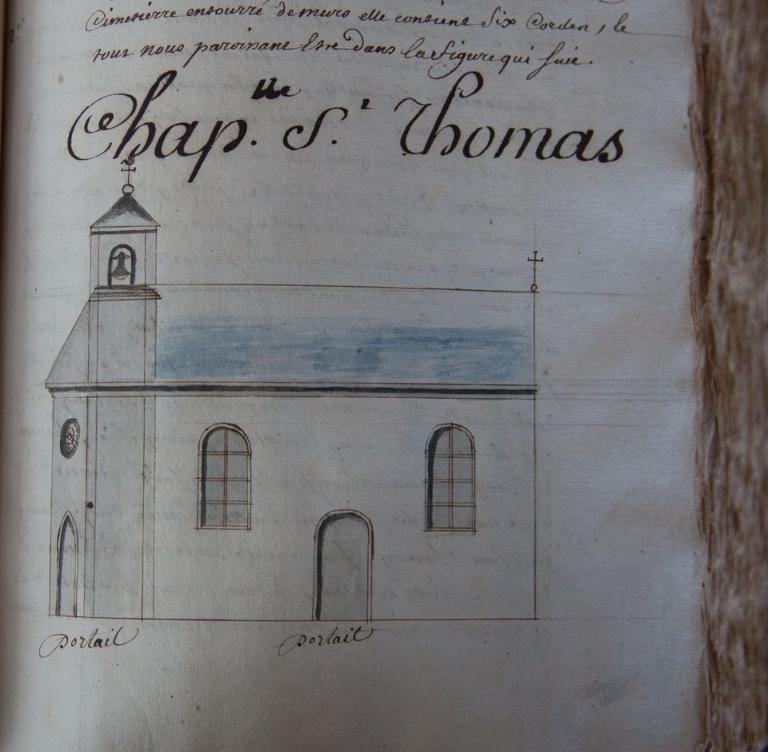 Cimetierre entourré de murs elle contient Six Cordes, le
tout nous paroissant Estre dans la figure qui suit.
Chap.lle S.t Thomas
portail
portail